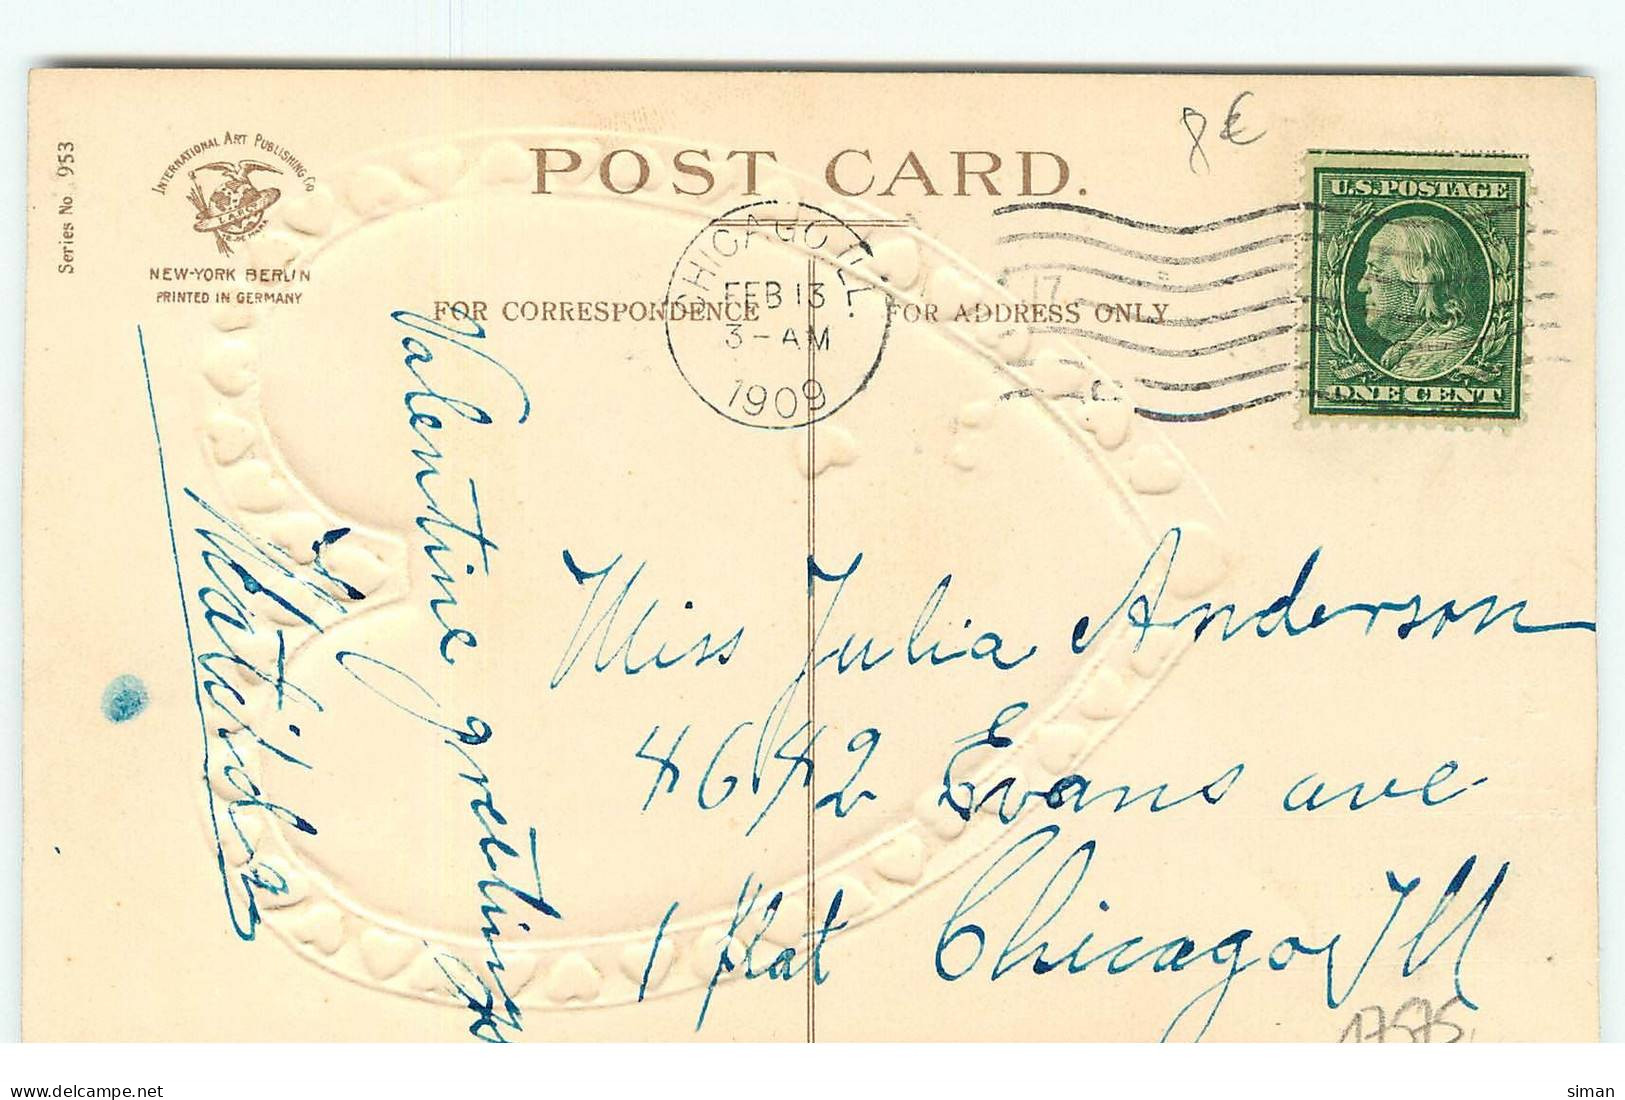 POST CARD.
8€
Series No. 953
INTERNATIONAL ART PUBLISHING Co
NEW-YORK BERLIN
PRINTED IN GERMANY
FOR CORRESPONDENCE
FOR ADDRESS ONLY
CHICAGO ILL.
FEB 13
3-AM
1909
U.S. POSTAGE
ONE CENT
Valentine greetings
Matilda
Miss Julia Anderson
4642 Evans ave
1 flat Chicago Ill
17575
delcampe.net
siman